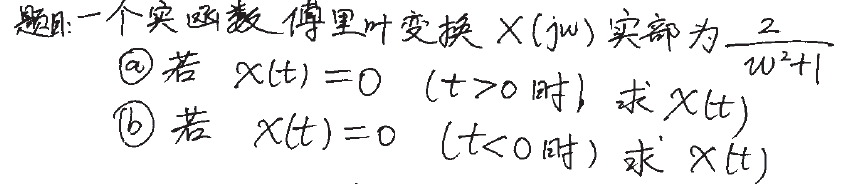 题目:一个实函数傅里叶变换 X(jw) 实部为 2/(w²+1)
ⓐ若 x(t)=0 (t>0时) 求 x(t)
ⓑ若 x(t)=0 (t<0时) 求 x(t)